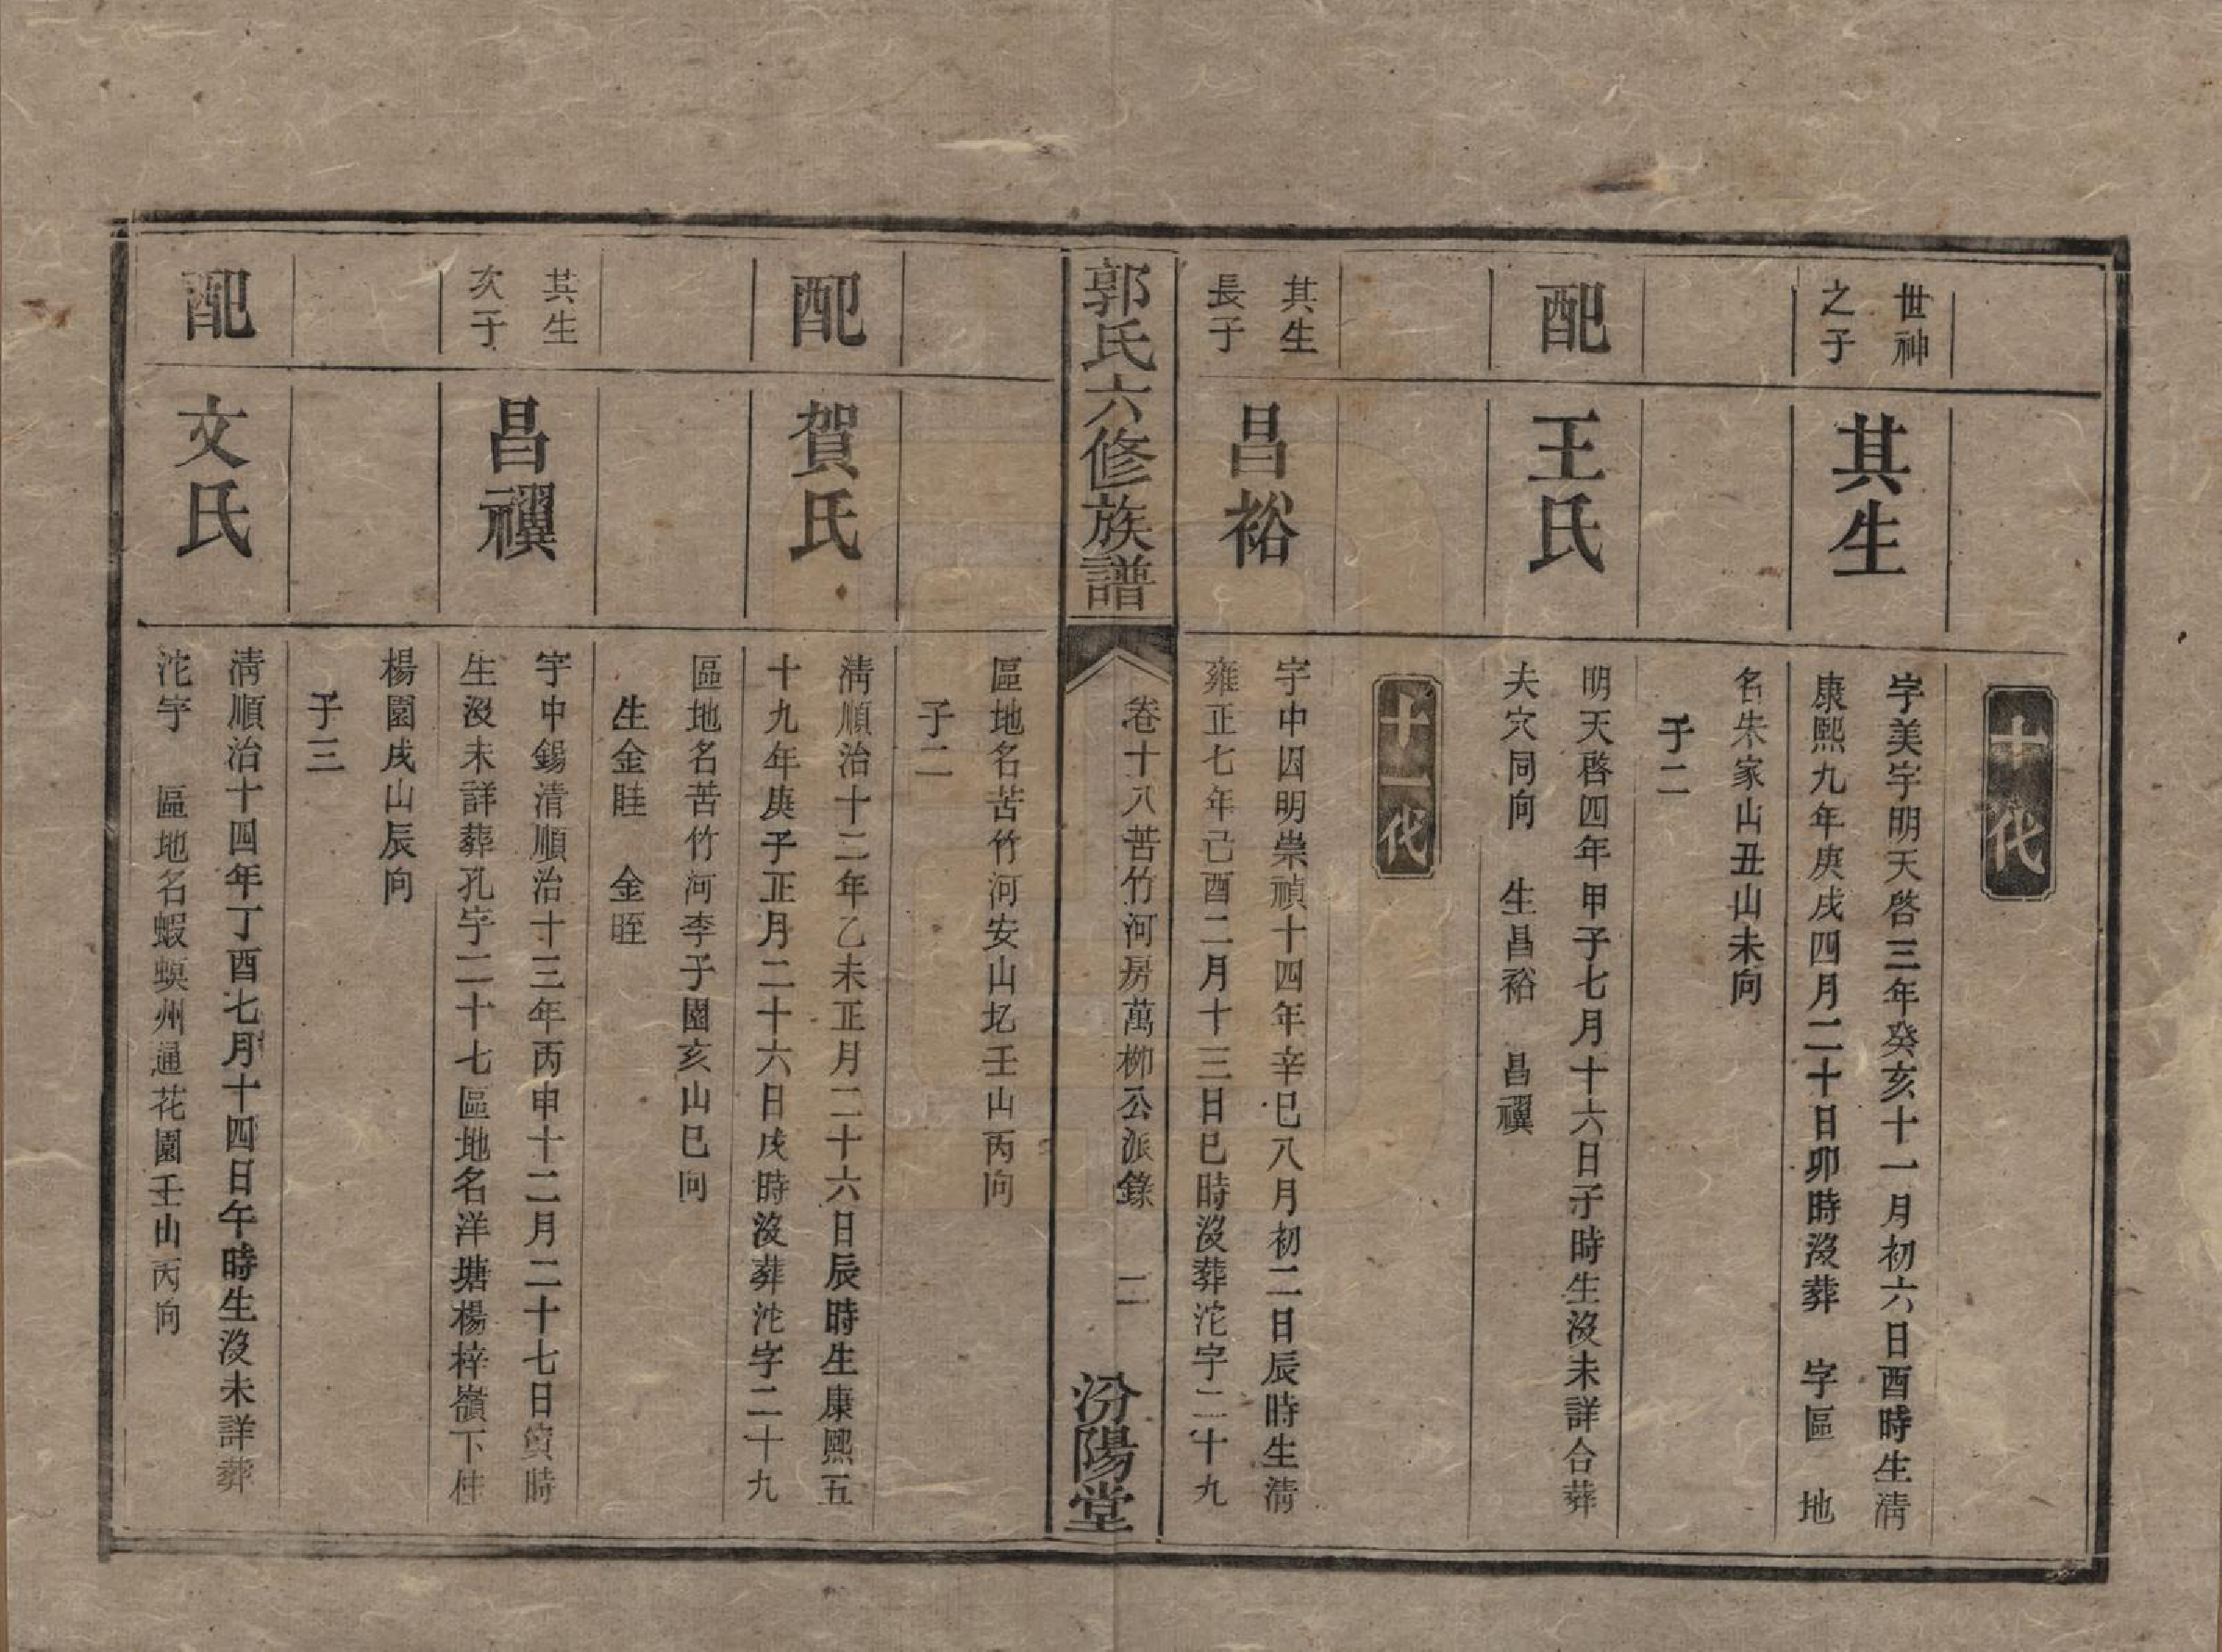 十代
世神
之子
其生
字美字明天啓三年癸亥十一月初六日酉時生清
康熙九年庚戌四月二十日卯時沒葬　字區　地
名朱家山丑山未向
子二
配
王氏
明天啓四年甲子七月十六日子時生沒未詳合葬
夫穴同向　生昌裕　昌禩
十一代
其生
長子
昌裕
字中因明崇禎十四年辛巳八月初二日辰時生清
雍正七年己酉二月十三日巳時沒葬沱字二十九
郭氏六修族譜
卷十八苦竹河房萬柳公派錄　二
汾陽堂
區地名苦竹河安山圪壬山丙向
子二
配
賀氏
清順治十二年乙未正月二十六日辰時生康熙五
十九年庚子正月二十六日戌時沒葬沱字二十九
區地名苦竹河李子園亥山巳向
生金眭　金眰
其生
次子
昌禩
字中錫清順治十三年丙申十二月二十七日寅時
生沒未詳葬孔字二十七區地名洋塘楊梓嶺下桂
楊園戌山辰向
子三
配
文氏
清順治十四年丁酉七月十四日午時生沒未詳葬
沱字　區地名蝦蟆州通花園壬山丙向